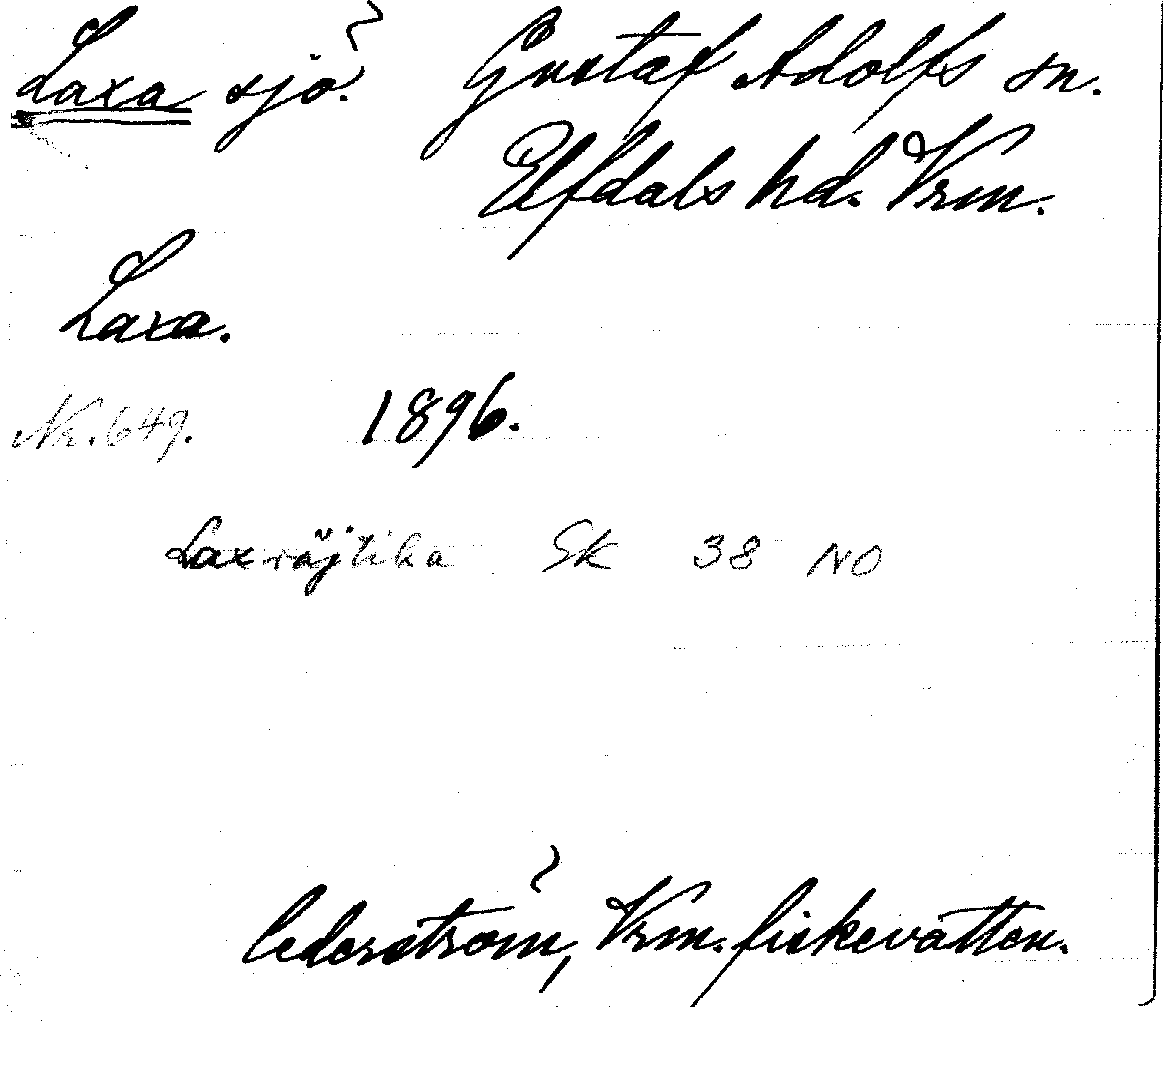 Laxa sjö. Gustaf Adolfs sn.
Elfdals hd. Vrm.
Laxa.
Nr. 649. 1896.
Laxröjtika Sk 38 NO
Cederström, Vrm. fiskevatten.